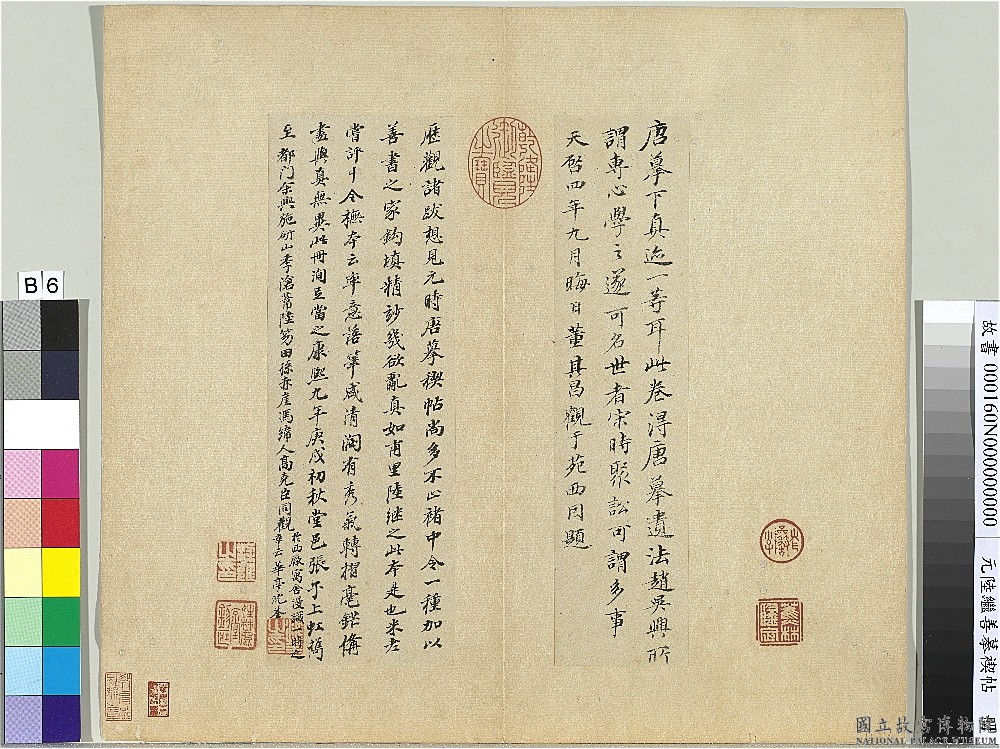 唐摹下真迹一等耳此卷得唐摹遺法趙吳興所
謂專心學之遂可名世者宋時聚訟可謂多事
天啟四年九月晦日董其昌觀于苑西因題
乾隆御覽之寶
歷觀諸跋想見元時唐摹稧帖尚多不止褚中令一種加以
善書之家鉤填精妙幾欲亂真如甫里陸继之此本是也米老
嘗評中令橅本云率意落筆咸清潤有秀氣轉摺毫鋩備
盡與真無異此冊洵足當之康熙九年庚戌初秋堂邑張尔上虹橋
至都门余與施研山李滄葦陸
田徐亦崖馮 人高 臣同觀
於西 寓舍漫識 時
華亭沈荃
B 6
故書 000160N000000000 元陸繼善摹禊帖
國立故宮博物院
NATIONAL PALACE MUSEUM